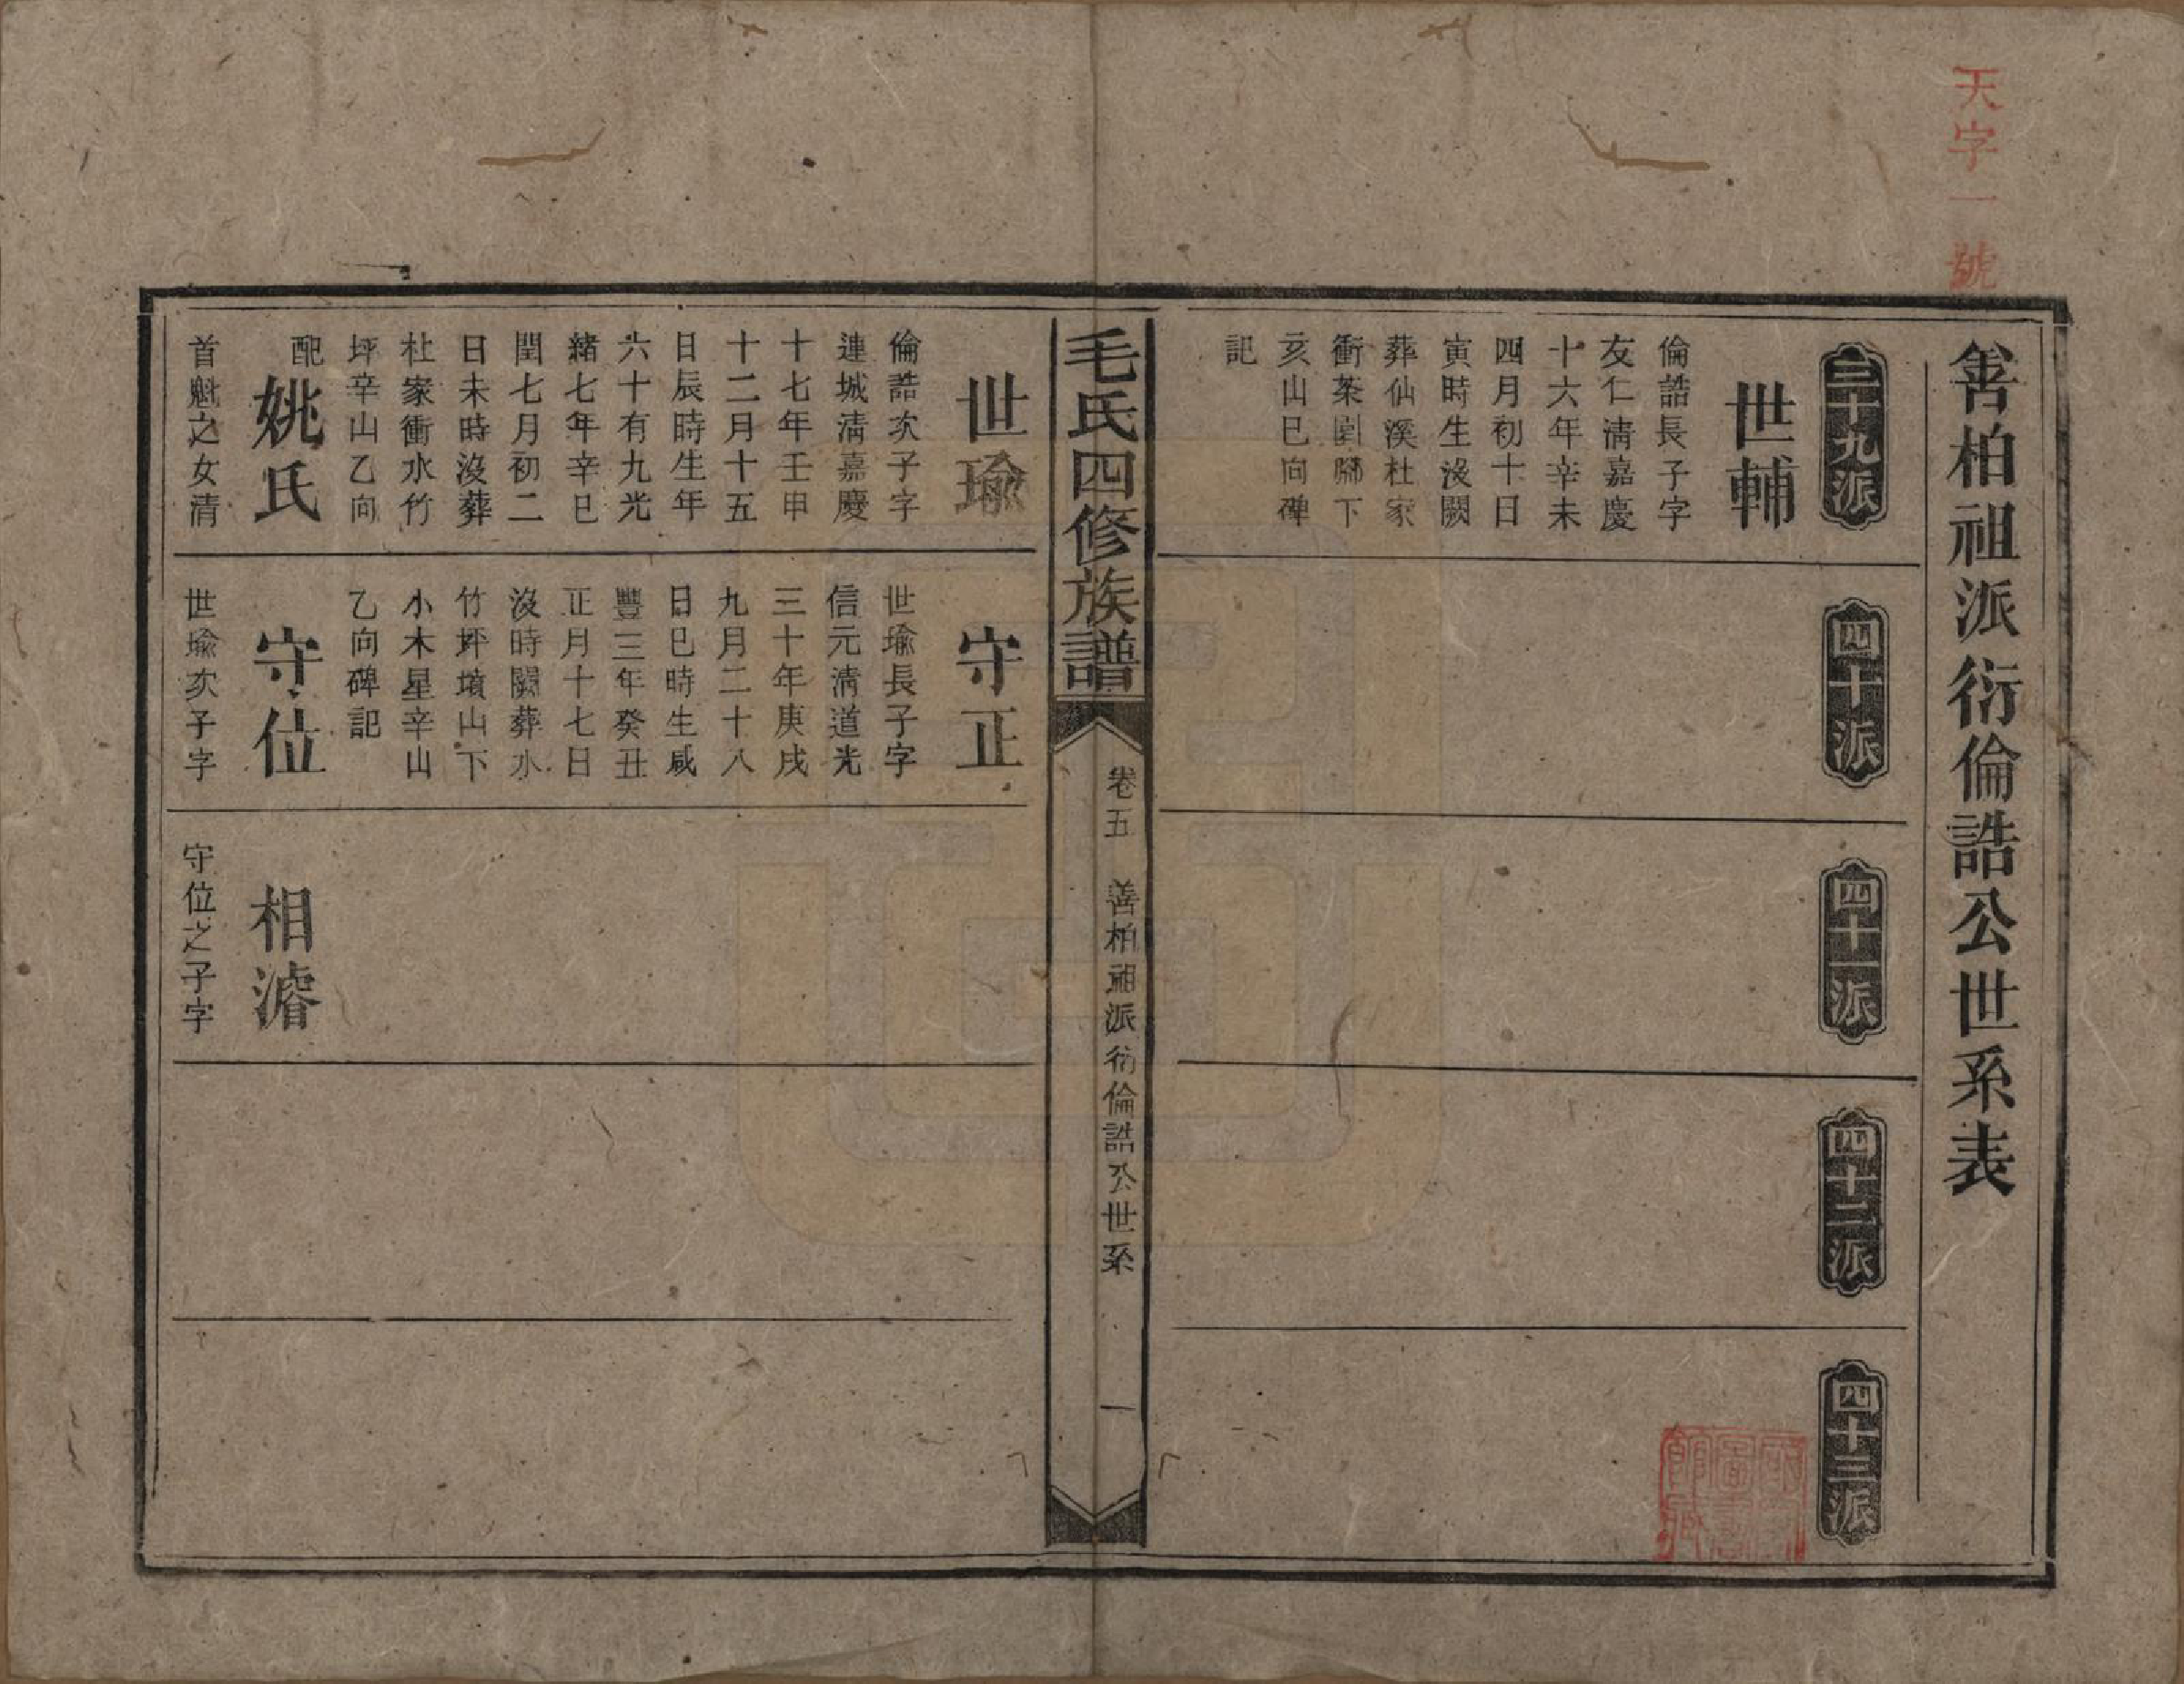 天字一號
善柏祖派衍倫誥公世系表
三十九派
世輔
倫誥長子字
友仁清嘉慶
十六年辛未
四月初十日
寅時生沒闕
葬仙溪杜家
衝茶園
下
亥山巳向碑
記
四十派
四十一派
四十二派
四十三派
毛氏四修族譜
卷五
善柏祖派衍倫誥公世系
一
世瑜
倫誥次子字
連城清嘉慶
十七年壬申
十二月十五
日辰時生年
六十有九光
緒七年辛巳
閏七月初二
日未時沒葬
杜家衝水竹
坪辛山乙向
配
姚氏
首魁之女清
守正
世瑜長子字
信元清道光
三十年庚戌
九月二十八
日巳時生咸
豐三年癸丑
正月十七日
沒時闕葬水
竹坪墳山下
小木星辛山
乙向碑記
守位
世瑜次子字
相濬
守位之子字